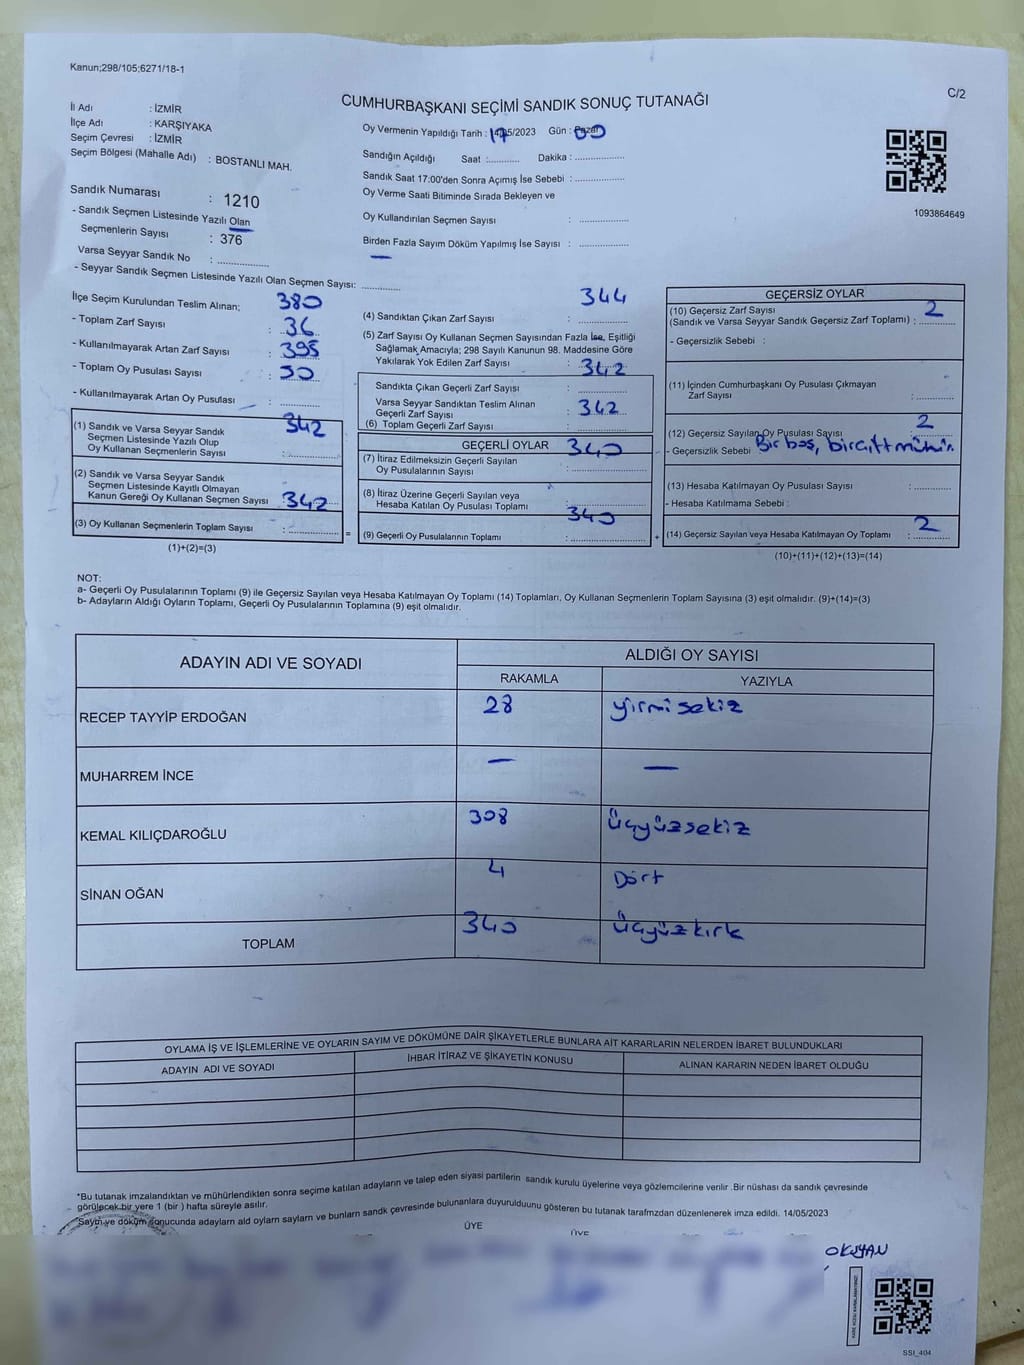 Kanun;298/105;6271/18-1
C/2
CUMHURBAŞKANI SEÇİMİ SANDIK SONUÇ TUTANAĞI
İl Adı : İZMİR
İlçe Adı : KARŞIYAKA
Seçim Çevresi : İZMİR
Seçim Bölgesi (Mahalle Adı) : BOSTANLI MAH.
Sandık Numarası : 1210
- Sandık Seçmen Listesinde Yazılı Olan
Seçmenlerin Sayısı : 376
Varsa Seyyar Sandık No : ..................
- Seyyar Sandık Seçmen Listesinde Yazılı Olan Seçmen Sayısı: .............
Oy Vermenin Yapıldığı Tarih : 14/05/2023 Gün : Pazar
17 00
Sandığın Açıldığı Saat :........... Dakika : .................
Sandık Saat 17:00'den Sonra Açımış İse Sebebi : .................
Oy Verme Saati Bitiminde Sırada Bekleyen ve
Oy Kullandırılan Seçmen Sayısı : .................
Birden Fazla Sayım Döküm Yapılmış İse Sayısı : .................
1093864649
İlçe Seçim Kurulundan Teslim Alınan; 380
- Toplam Zarf Sayısı : 36
- Kullanılmayarak Artan Zarf Sayısı : 395
- Toplam Oy Pusulası Sayısı : 50
- Kullanılmayarak Artan Oy Pusulası : .............
342
(1) Sandık ve Varsa Seyyar Sandık
Seçmen Listesinde Yazılı Olup
Oy Kullanan Seçmenlerin Sayısı : .............
(2) Sandık ve Varsa Seyyar Sandık
Seçmen Listesinde Kayıtlı Olmayan
Kanun Gereği Oy Kullanan Seçmen Sayısı : 342
(3) Oy Kullanan Seçmenlerin Toplam Sayısı : ............. =
(1)+(2)=(3)
344
(4) Sandıktan Çıkan Zarf Sayısı : .............
(5) Zarf Sayısı Oy Kullanan Seçmen Sayısından Fazla İse, Eşitliği
Sağlamak Amacıyla; 298 Sayılı Kanunun 98. Maddesine Göre
Yakılarak Yok Edilen Zarf Sayısı : 342
Sandıkta Çıkan Geçerli Zarf Sayısı : .............
Varsa Seyyar Sandıktan Teslim Alınan
Geçerli Zarf Sayısı : 342
(6) Toplam Geçerli Zarf Sayısı : .............
GEÇERLİ OYLAR 340
(7) İtiraz Edilmeksizin Geçerli Sayılan
Oy Pusulalarının Sayısı : .............
(8) İtiraz Üzerine Geçerli Sayılan veya
Hesaba Katılan Oy Pusulası Toplamı : .............
340
(9) Geçerli Oy Pusulalarının Toplamı : ............. +
GEÇERSİZ OYLAR
(10) Geçersiz Zarf Sayısı 2
(Sandık ve Varsa Seyyar Sandık Geçersiz Zarf Toplamı) : .............
- Geçersizlik Sebebi :
(11) İçinden Cumhurbaşkanı Oy Pusulası Çıkmayan
Zarf Sayısı : .............
(12) Geçersiz Sayılan Oy Pusulası Sayısı : 2
- Geçersizlik Sebebi : Bir boş, bir çift mühür
(13) Hesaba Katılmayan Oy Pusulası Sayısı : .............
- Hesaba Katılmama Sebebi :
2
(14) Geçersiz Sayılan veya Hesaba Katılmayan Oy Toplamı : .............
(10)+(11)+(12)+(13)=(14)
NOT:
a- Geçerli Oy Pusulalarının Toplamı (9) ile Geçersiz Sayılan veya Hesaba Katılmayan Oy Toplamı (14) Toplamları, Oy Kullanan Seçmenlerin Toplam Sayısına (3) eşit olmalıdır. (9)+(14)=(3)
b- Adayların Aldığı Oyların Toplamı, Geçerli Oy Pusulalarının Toplamına (9) eşit olmalıdır.
ADAYIN ADI VE SOYADI ALDIĞI OY SAYISI
RAKAMLA YAZIYLA
RECEP TAYYİP ERDOĞAN 28 yirmi sekiz
MUHARREM İNCE — —
KEMAL KILIÇDAROĞLU 308 üçyüzsekiz
SİNAN OĞAN 4 Dört
TOPLAM 340 üçyüzkırk
OYLAMA İŞ VE İŞLEMLERİNE VE OYLARIN SAYIM VE DÖKÜMÜNE DAİR ŞİKAYETLERLE BUNLARA AİT KARARLARIN NELERDEN İBARET BULUNDUKLARI
ADAYIN ADI VE SOYADI İHBAR İTİRAZ VE ŞİKAYETİN KONUSU ALINAN KARARIN NEDEN İBARET OLDUĞU
*Bu tutanak imzalandıktan ve mühürlendikten sonra seçime katılan adayların ve talep eden siyasi partilerin sandık kurulu üyelerine veya gözlemcilerine verilir .Bir nüshası da sandık çevresinde
görülecek bir yere 1 (bir ) hafta süreyle asılır.
*Sayım ve döküm sonucunda adayların ald oyların sayların ve bunların sandk çevresinde bulunanlara duyurulduunu gösteren bu tutanak tarafmzdan düzenlenerek imza edildi. 14/05/2023
ÜYE ÜYE
OKUYAN
SSI_404